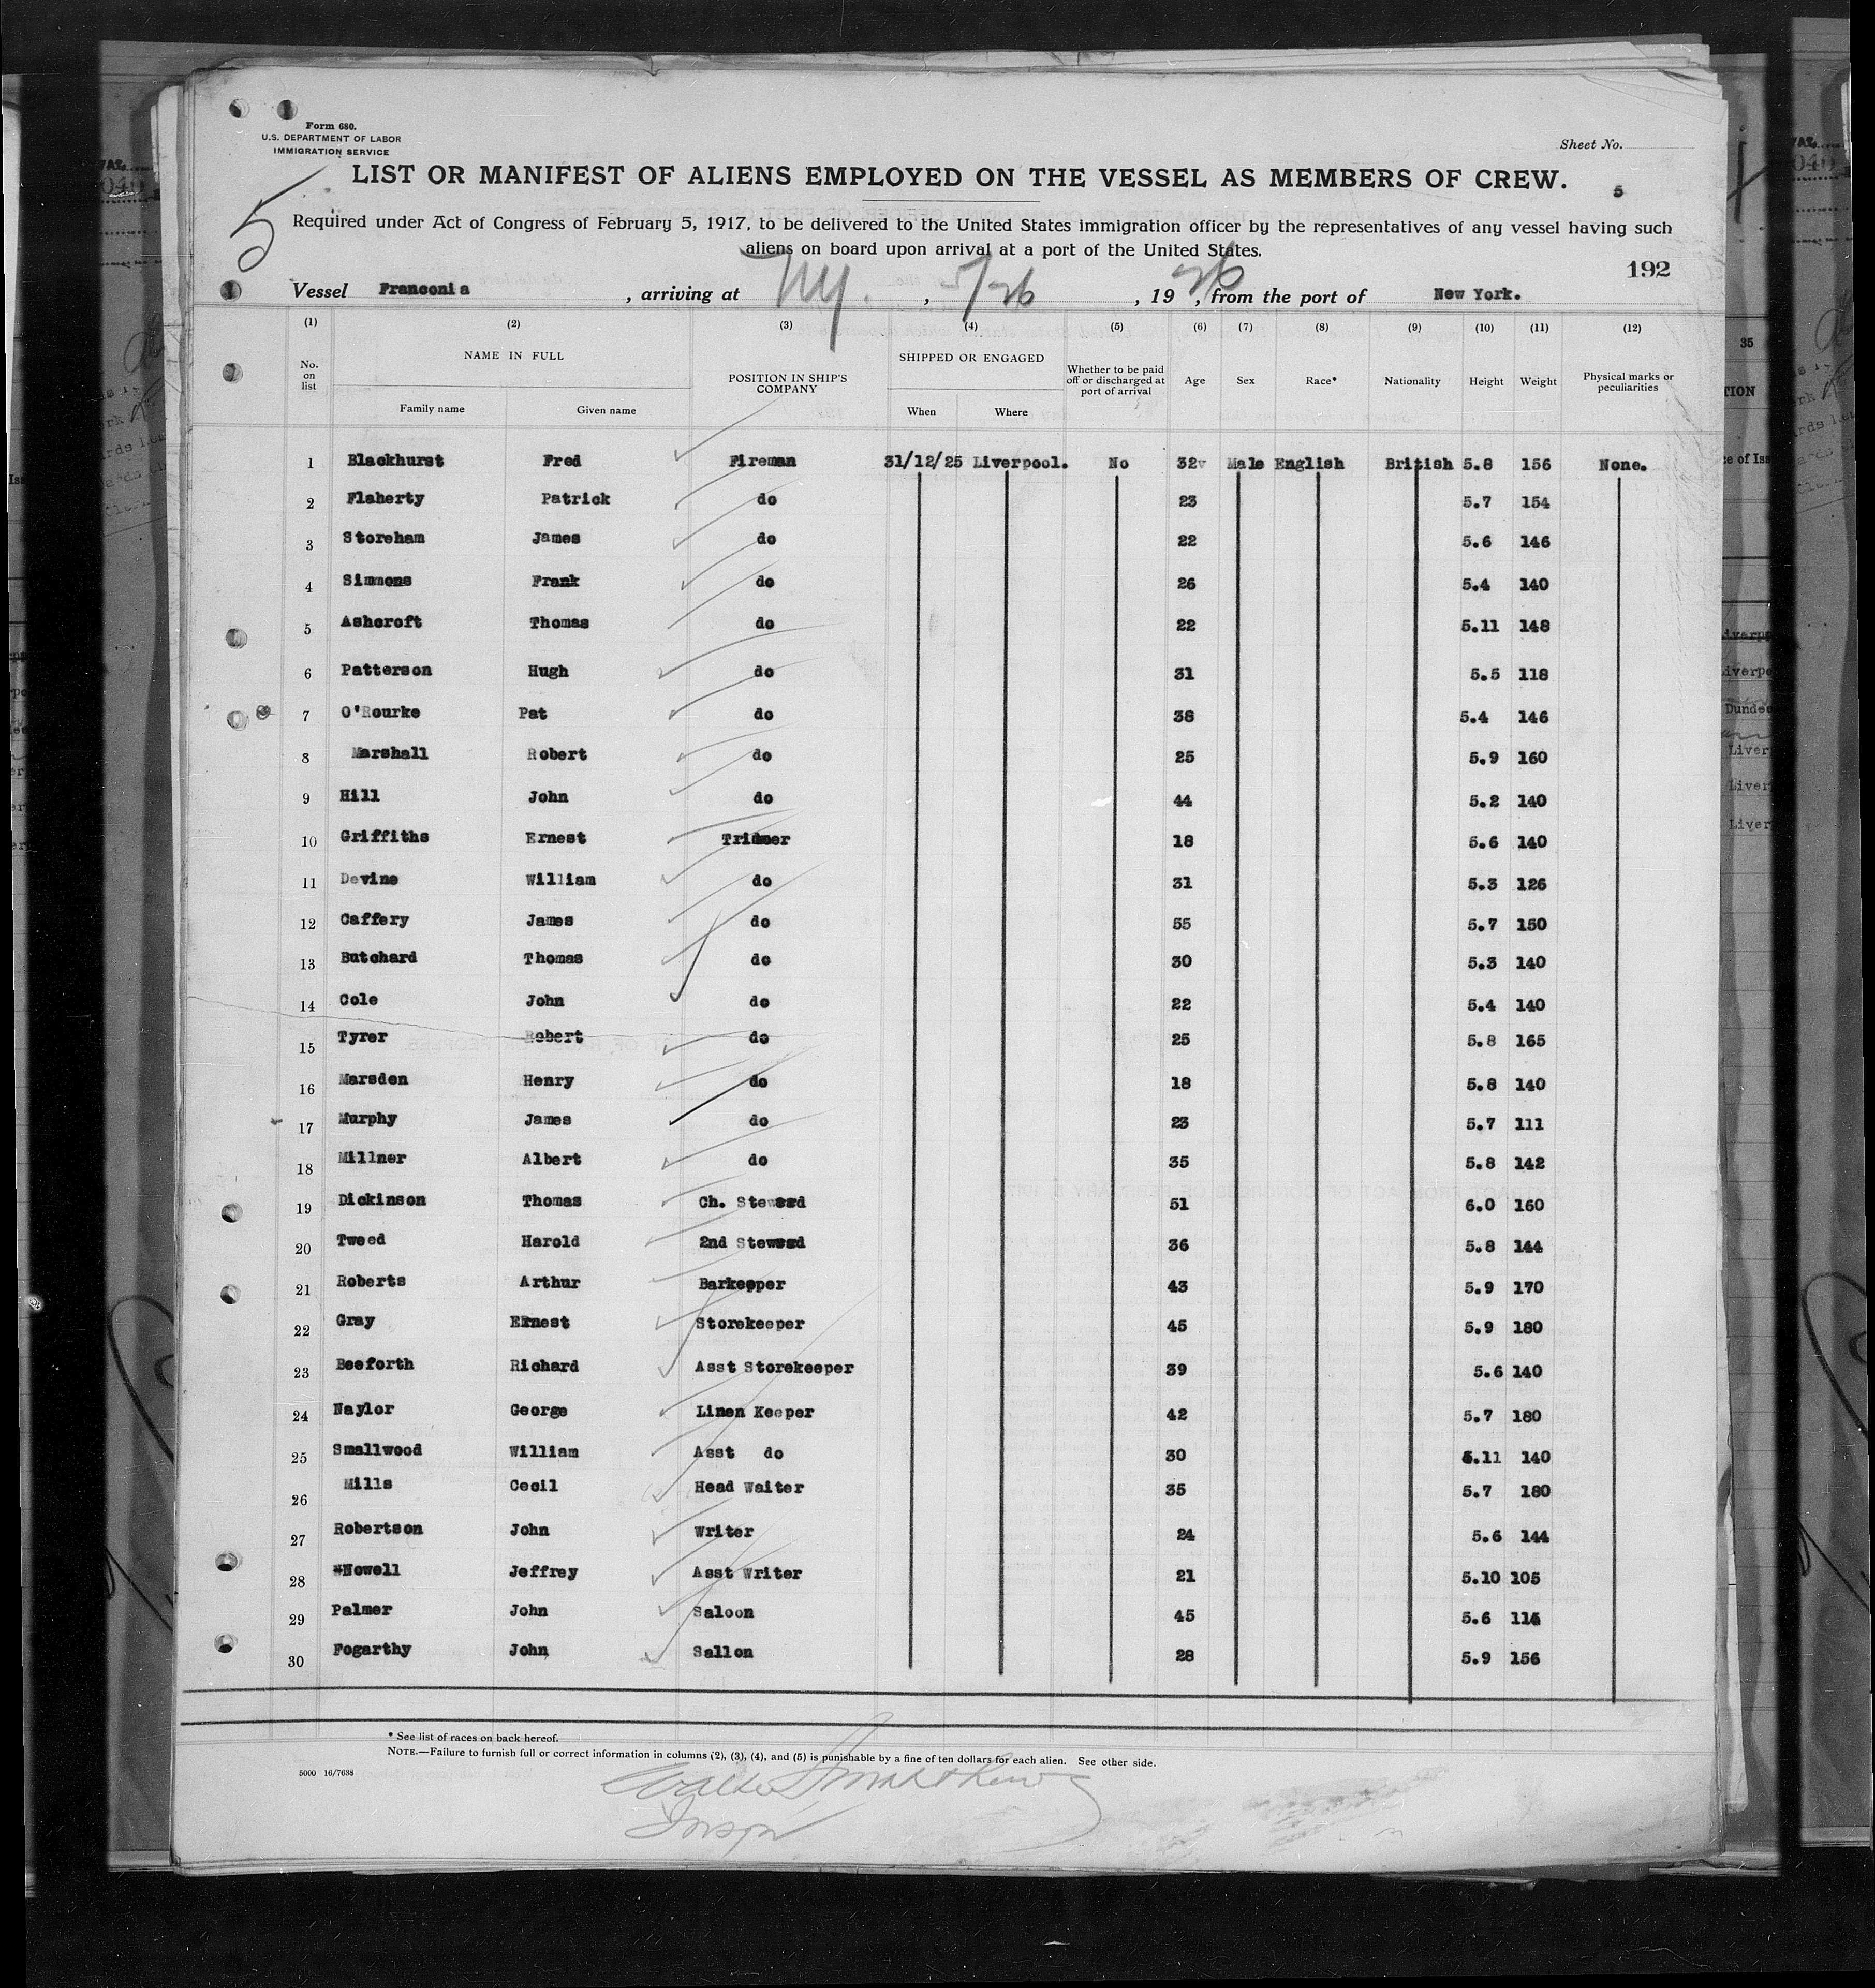 Form 680.
U.S. DEPARTMENT OF LABOR
IMMIGRATION SERVICE
Sheet No.
LIST OR MANIFEST OF ALIENS EMPLOYED ON THE VESSEL AS MEMBERS OF CREW.
5
5
Required under Act of Congress of February 5, 1917, to be delivered to the United States immigration officer by the representatives of any vessel having such
aliens on board upon arrival at a port of the United States.
192
Vessel Franconia, arriving at NY., 5/26, 1926, from the port of New York.
(1) (2) (3) (4) (5) (6) (7) (8) (9) (10) (11) (12)
No. on list NAME IN FULL POSITION IN SHIP'S COMPANY SHIPPED OR ENGAGED Whether to be paid off or discharged at port of arrival Age Sex Race* Nationality Height Weight Physical marks or peculiarities
Family name Given name When Where
1 Blackhurst Fred Fireman 31/12/25 Liverpool. No 32 Male English British 5.8 156 None.
2 Flaherty Patrick do 23 5.7 154
3 Storeham James do 22 5.6 146
4 Simmons Frank do 26 5.4 140
5 Ashcroft Thomas do 22 5.11 148
6 Patterson Hugh do 31 5.5 118
7 O'Rourke Pat do 38 5.4 146
8 Marshall Robert do 25 5.9 160
9 Hill John do 44 5.2 140
10 Griffiths Ernest Trimmer 18 5.6 140
11 Devine William do 31 5.3 126
12 Caffery James do 55 5.7 150
13 Butchard Thomas do 30 5.3 140
14 Cole John do 22 5.4 140
15 Tyrer Robert do 25 5.8 165
16 Marsden Henry do 18 5.8 140
17 Murphy James do 23 5.7 111
18 Millner Albert do 35 5.8 142
19 Dickinson Thomas Ch. Steward 51 6.0 160
20 Tweed Harold 2nd Steward 36 5.8 144
21 Roberts Arthur Barkeeper 43 5.9 170
22 Gray Ernest Storekeeper 45 5.9 180
23 Beeforth Richard Asst Storekeeper 39 5.6 140
24 Naylor George Linen Keeper 42 5.7 180
25 Smallwood William Asst do 30 5.11 140
26 Mills Cecil Head Waiter 35 5.7 180
27 Robertson John Writer 24 5.6 144
28 Nowell Jeffrey Asst Writer 21 5.10 105
29 Palmer John Saloon 45 5.6 115
30 Fogarthy John Sallon 28 5.9 156
* See list of races on back hereof.
NOTE.—Failure to furnish full or correct information in columns (2), (3), (4), and (5) is punishable by a fine of ten dollars for each alien. See other side.
5000 16/7638
Walter Matthews
Inspr